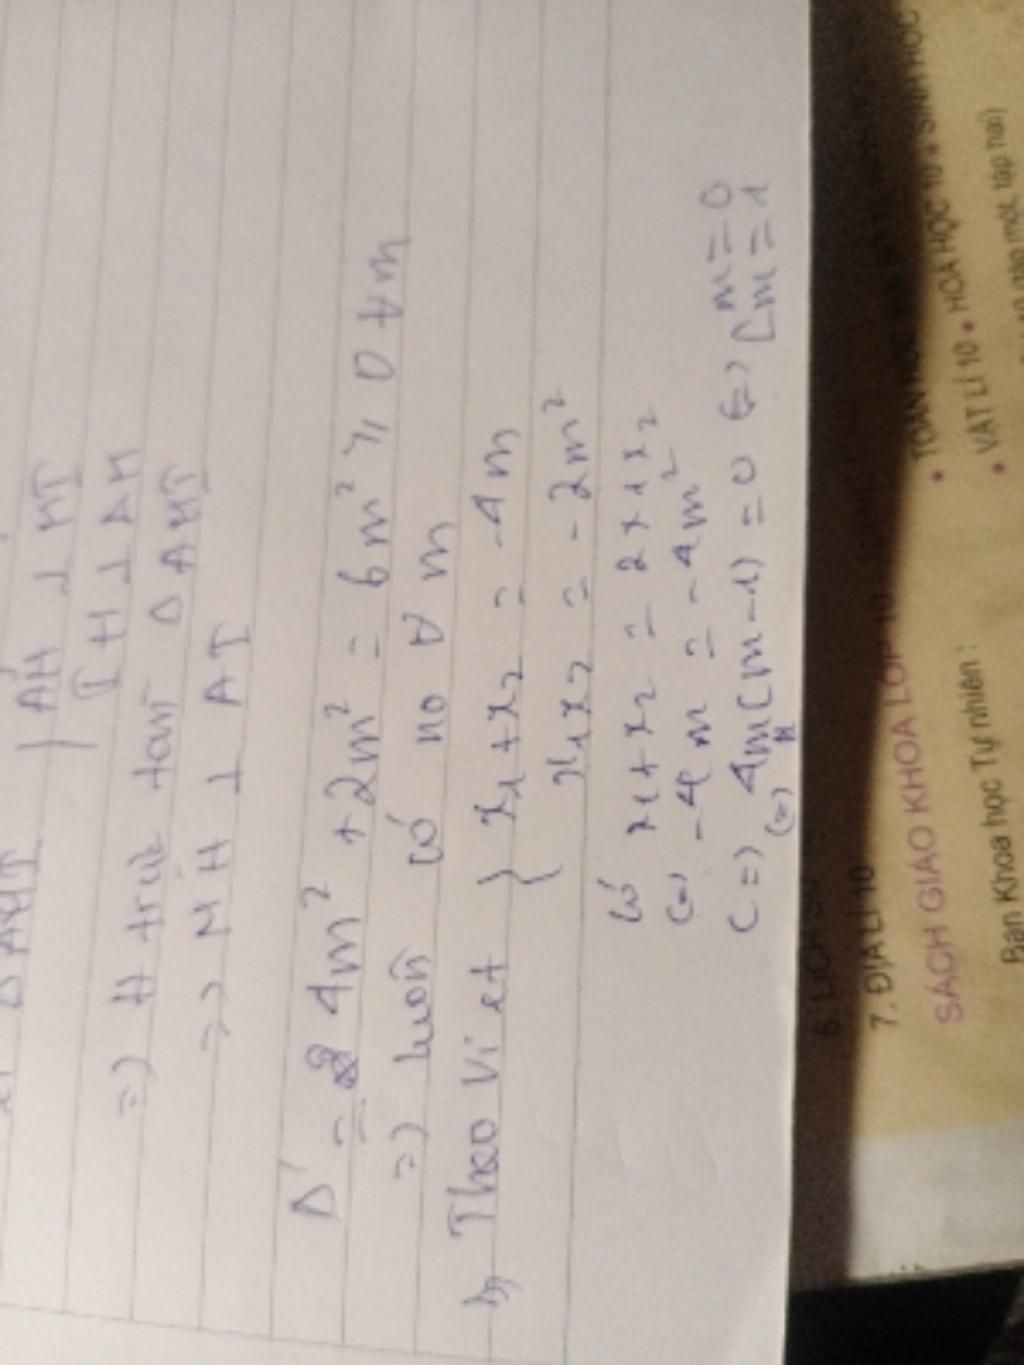 Δ AMI } AH ⊥ MI
IH ⊥ AM
=) H trực tâm Δ AMI
=> MH ⊥ AI
Δ' = 4m² + 2m² = 6m² ≥ 0 ∀m
=) luôn có no ∀ m
b, Theo Vi et } x1+x2 = -4m
x1x2 = -2m²
Có x1+x2 = 2x1x2
(=) -4m = -4m²
(=) 4m(m-1) = 0 (=) [m=0
(=) [m=1
6. LỊCH SỬ
7. ĐỊA LÍ 10
SÁCH GIÁO KHOA LỚP 10
Ban Khoa học Tự nhiên :
• TOÁN HỌC
• VẬT LÍ 10 • HOÁ HỌC 10 • SINH HỌC
một, tập hai)